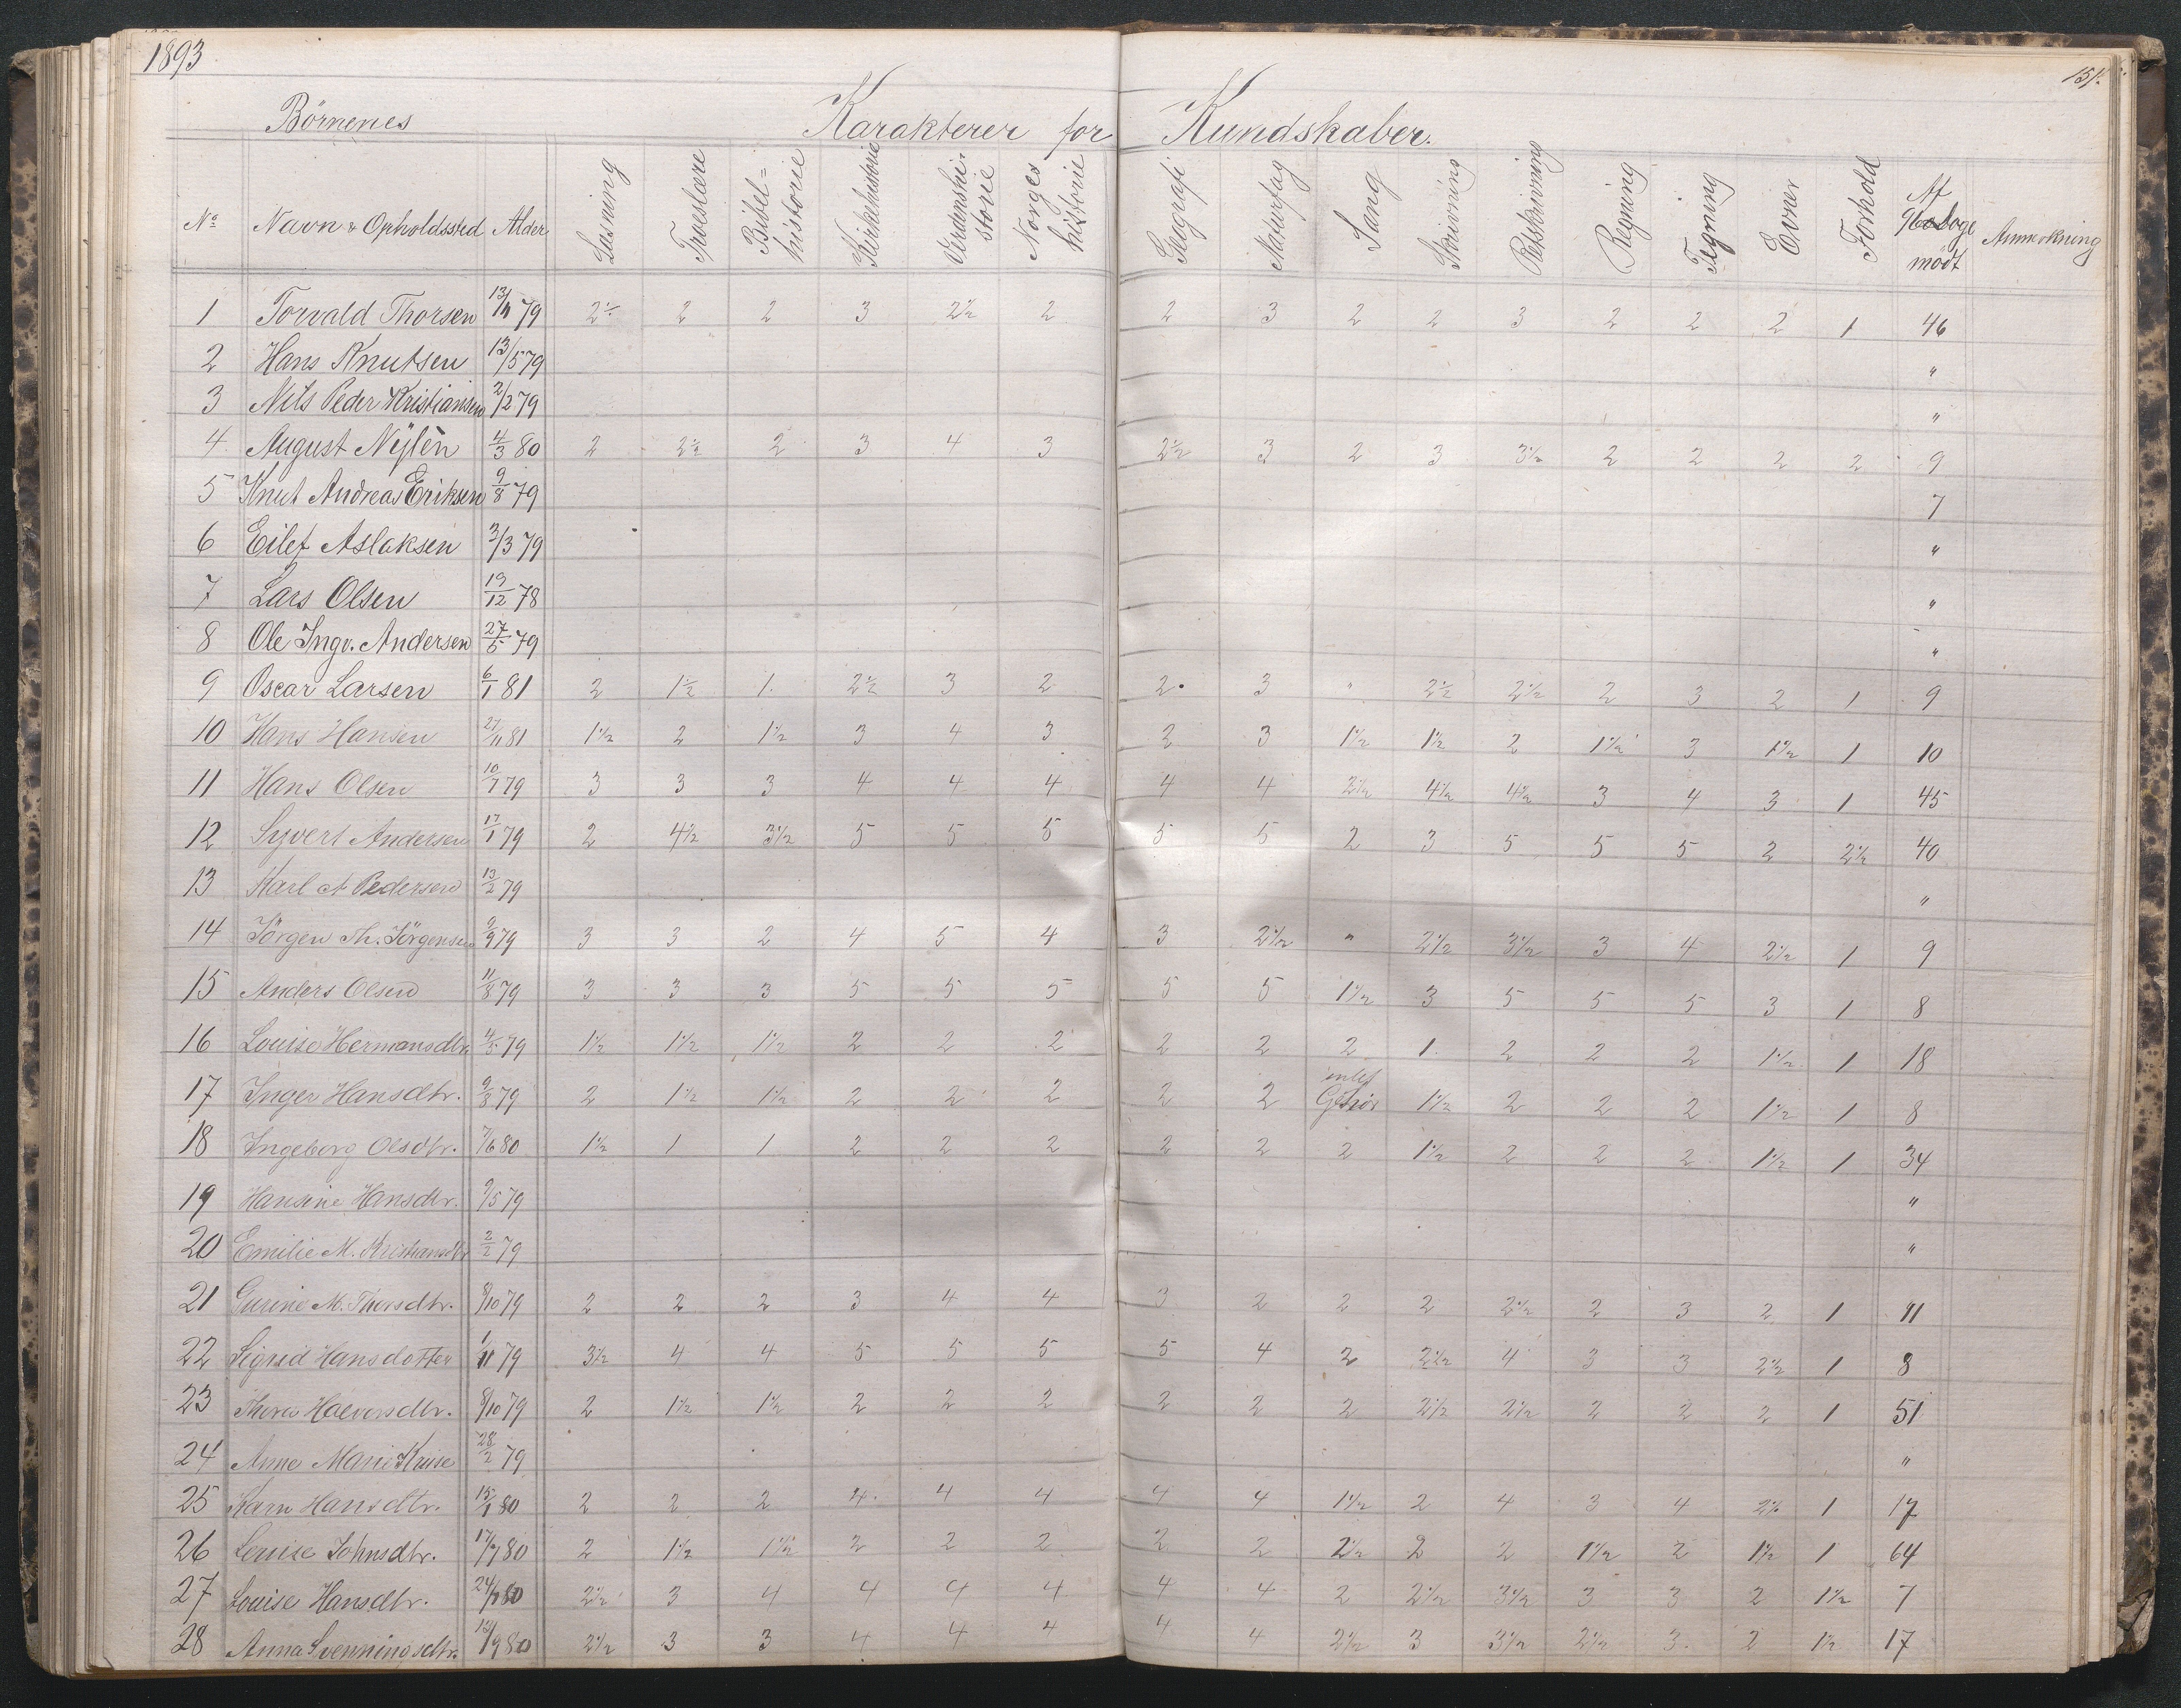 1893
151.
Börnenes Karakterer for Kundskaber.
No Navn & Opholdssted Alder Læsning Troeslære Bibel= historie Kirkehistorie Verdenshi- storie Norges historie Geografi Naturfag Sang Skrivning Retskrivning Regning Tegning Evner Forhold Af Dage mödt Anmerkning
1 Torvald Thorsen 79 2½ 2 2 3 2½ 2 2 3 2 2 3 2 2 2 1 46
2 Hans Knutsen 13/5 79 "
3 Nils Peder Kristiansen 2/2 79 "
4 August Nylèn 4/3 80 2 2½ 2 3 4 3 2½ 3 2 3 3½ 2 2 2 2 9
5 Knut Andreas Eriksen 9/8 79 7
6 Eilef Aslaksen 3/3 79 "
7 Lars Olsen 19/12 78 "
8 Ole Ingv. Andersen 27/5 79 "
9 Oscar Larsen 6/1 81 2 1½ 1. 2½ 3 2 2. 3 " 2½ 2½ 2 3 2 1 9
10 Hans Hansen 27/11 81 1½ 2 1½ 3 4 3 2 3 1½ 1½ 2 1½ 3 1½ 1 10
11 Hans Olsen 10/7 79 3 3 3 4 4 4 4 4 2½ 4½ 4½ 3 4 3 1 45
12 Syvert Andersen 17/1 79 2 4½ 3½ 5 5 5 5 5 2 3 5 5 5 2 2½ 40
13 Karl A Pedersen 13/2 79 "
14 Jörgen Th. Jörgensen 9/9 79 3 3 2 4 5 4 3 2½ " 2½ 3½ 3 4 2½ 1 9
15 Anders Olsen 11/8 79 3 3 3 5 5 5 5 5 1½ 3 5 5 5 3 1 8
16 Louise Hermansdtr. 4/5 79 1½ 1½ 1½ 2 2 2 2 2 2 1. 2 2 2 1½ 1 18
17 Inger Hansdtr. 9/8 79 2 1½ 1½ 2 2 2 2 2 intet Gehör 1½ 2 2 2 1½ 1 8
18 Ingeborg Olsdtr. 7/6 80 1½ 1 1 2 2 2 2 2 2 1½ 2 2 2 1½ 1 34
19 Hansine Hansdtr. 9/5 79 "
20 Emilie M. Kristiansdtr 2/2 79 "
21 Gurine M. Thorsdtr. 8/10 79 2 2 2 3 4 4 3 2 2 2 2½ 2 3 2 1 11
22 Sigrid Hansdotter 1/11 79 3½ 4 4 5 5 5 5 4 2 2½ 4 3 3 2½ 1 8
23 Halvorsdtr. 8/10 79 2 1½ 1½ 2 2 2 2 2 2 2½ 2½ 2 2 2 1 51
24 Anne Marie Kruse 28/2 79 "
25 Karn Hansdtr. 15/1 80 2 2 2 4. 4 4 4 4 1½ 2 4 3 4 2½ 1 17
26 Louise Johnsdtr. 17/7 80 2 1½ 1½ 2 2 2 2 2 2½ 2 2 1½ 2 1½ 1 64
27 Louise Hansdtr. 80 2½ 3 4 4 4 4 4 4 2 2½ 3½ 3 3 2 1½ 7
28 Anna Svenningsdtr. 13/9 80 2½ 3 3 4 4 4 4 4 2½ 3 3½ 2½ 3. 2 1½ 17